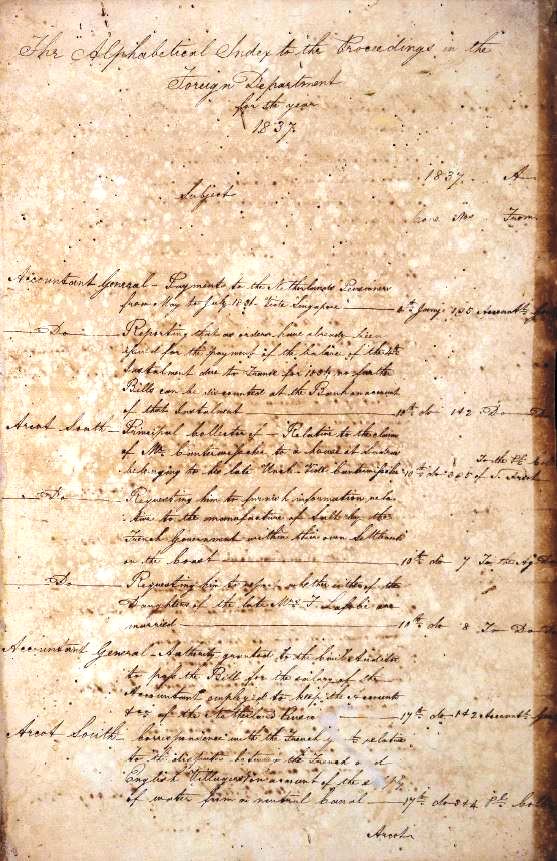 The Alphabetical Index to the Proceedings in the
Foreign Department
for the year
1837.
1837. A
Subject
Cons. No. From
Accountant General – Payments to the Netherlands Pensioners
from May to July 1831 – Vide Singapore — 4th Jany. 1,2,5 Accountt.
— Do — Reporting that as orders have already been
issued for the payment of the balance of the 4th
Instalment due to France for 1836 no further
Bills can be discounted at the Bank on account
of that Instalment — 10th do 1 & 2 — Do —
Arcot South — Principal Collector of — Relative to the claim
of Mr. to a house at
To the Pl.
belonging to the late — 10th do of S. Arcot
— Do — Requesting him to furnish information rela-
-tive to the manufacture of Salt by the
French Government within their own Settlements
on the Coast — 10th do 7 To the Ag
— Do — Requesting him to report whether either of the
Daughters of the late Mrs. are
married — 10th do 8 To Do
Accountant General – Authority granted to the Civil Auditor
to pass the Bill for the salary of the
Accountant employed to keep the accounts
&ca. of the Netherland — 17th do 1 & 2 Accountt.
Arcot South – Correspondence with the French relative
to the disputes between the French and
English Villagers on account of the
of water from a neutral Canal — 17th do 3 & 4 Pl. Coll
Arcot